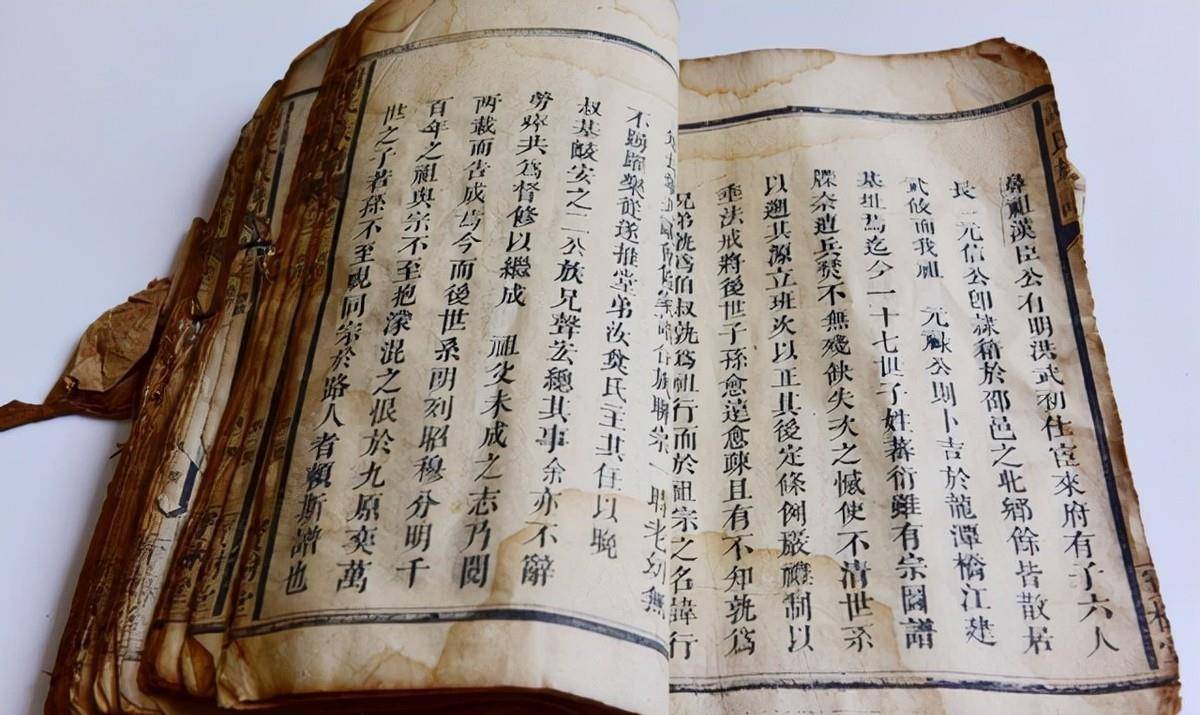 祖漢臣公有明洪武初仕宦來府有子六人
長 元信公卽隸籍於邵邑之北鄉餘皆散居
貳攸而我祖 元祿公則卜吉於龍潭橋江建
基址焉迄今一十七世子姓蕃衍雖有宗圖譜
牒奈遭兵燹不無殘缺失次之憾使不清世系
以遡其源立班次以正其後定條例嚴禮制以
垂法戒將後世子孫愈遠愈疎且有不知孰爲
兄弟孰爲伯叔孰爲祖行而於祖宗之名諱行
族聯宗一時老幼無
不踴躍樂從遂推堂弟汝奐民主其任以晚
叔基皷安之二公族兄聲宏總其事余亦不辭
勞瘁共爲督修以繼成 祖父未成之志乃閱
两載而告成焉今而後世系明列昭穆分明千
百年之祖與宗不至抱濛混之恨於九原奕萬
世之子若孫不至視同宗於路人者賴斯譜也